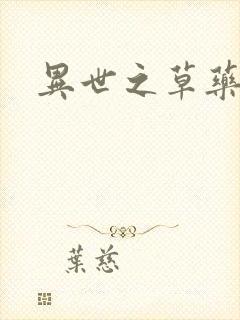 異世之草藥
葉慈